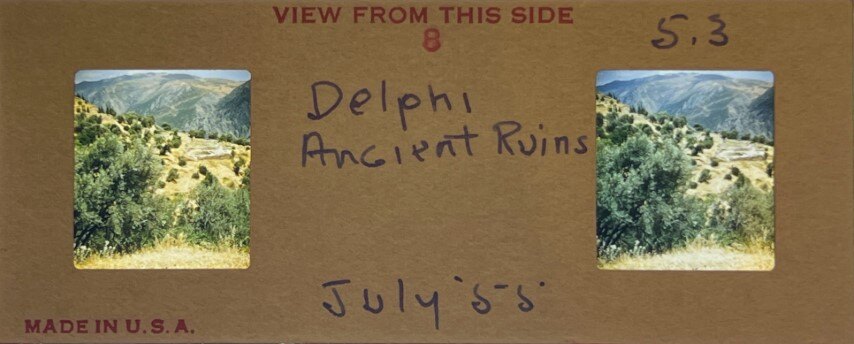 VIEW FROM THIS SIDE
8
5.3
Delphi
Ancient Ruins
July '55
MADE IN U.S.A.